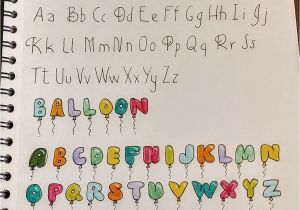 Aa Bb Cc Dd Ee Ff Gg Hh Ii Jj
Kk Ll Mm Nn Oo Pp Qq Rr Ss
Tt Uu Vv Ww Xx Yy Zz
BALLOON
ABCDEFHIJKLMN
OPQRSTUVWXYZ